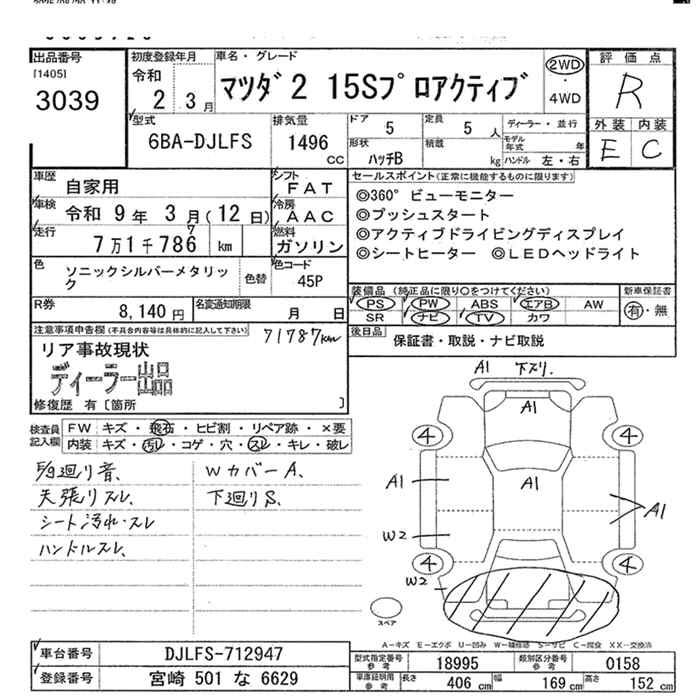 出品番号
[1405]
3039
初度登録年月
令和
2 3月
車名・グレード
マツダ2 15Sプロアクティブ
2WD
・
4WD
評価点
R
外装 内装
E C
型式
6BA-DJLFS
排気量
1496
CC
ドア 5
形状 ハッチB
定員 5 人
積載 kg
ディーラー・並行
モデル年式 年
ハンドル 左・右
車歴 自家用
車検 令和 9年 3月(12日)
走行 7万1千786 km
7
シフト FAT
冷房 AAC
燃料 ガソリン
色 ソニックシルバーメタリック
色替
色コード 45P
R券 8,140円
名変通知期限 月 日
セールスポイント(正常に機能するものに限ります)
◎360°ビューモニター
◎プッシュスタート
◎アクティブドライビングディスプレイ
◎シートヒーター ◎LEDヘッドライト
装備品(純正品に限り○をつけてください)
PS PW ABS エアB AW
SR ナビ TV カワ
新車保証書
有・無
後日品 保証書・取説・ナビ取説
注意事項申告欄(不具合内容等は具体的に記入して下さい)
71787km
リア事故現状
ディーラー出品
修復歴 有[箇所 ]
検査員記入欄
FW キズ・飛石・ヒビ割・リペア跡・×要
内装 キズ・汚れ・コゲ・穴・スレ・キレ・破レ
廻り音、
天張りスレ、
シート汚れ・スレ
ハンドルスレ、
WカバーA、
下廻りS、
A1 下スリ、
A1
4 4
A1 A1 A1
W2
4 4
W2
スペア
A-キズ E-エクボ U-凹み W-補修跡 S-サビ C-腐食 XX-交換済
車台番号 DJLFS-712947
登録番号 宮崎 501 な 6629
型式指定番号 参考 18995
類別区分番号 参考 0158
車庫証明用 参考 長さ 406 cm 幅 169 cm 高さ 152 cm